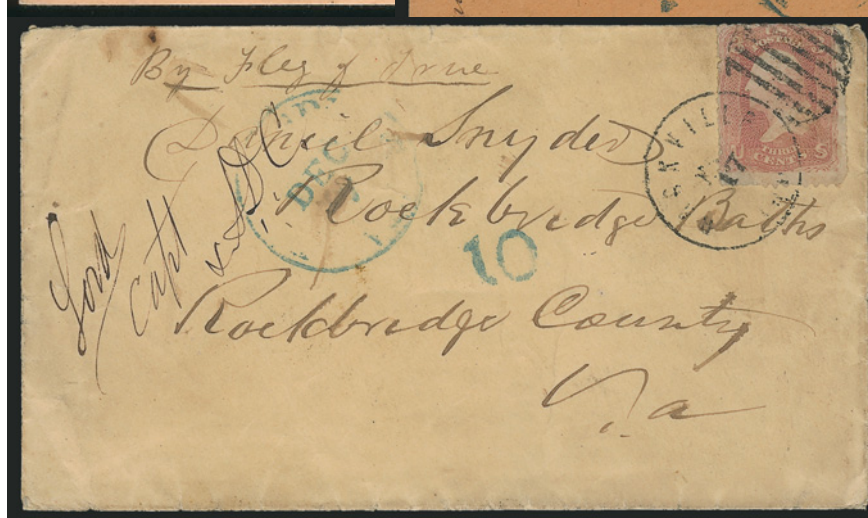 By Flag of True
Daniel Snyder
Rockbridge Baths
Rockbridge County
Va
Capt
DEC
10
17
THREE
CENTS